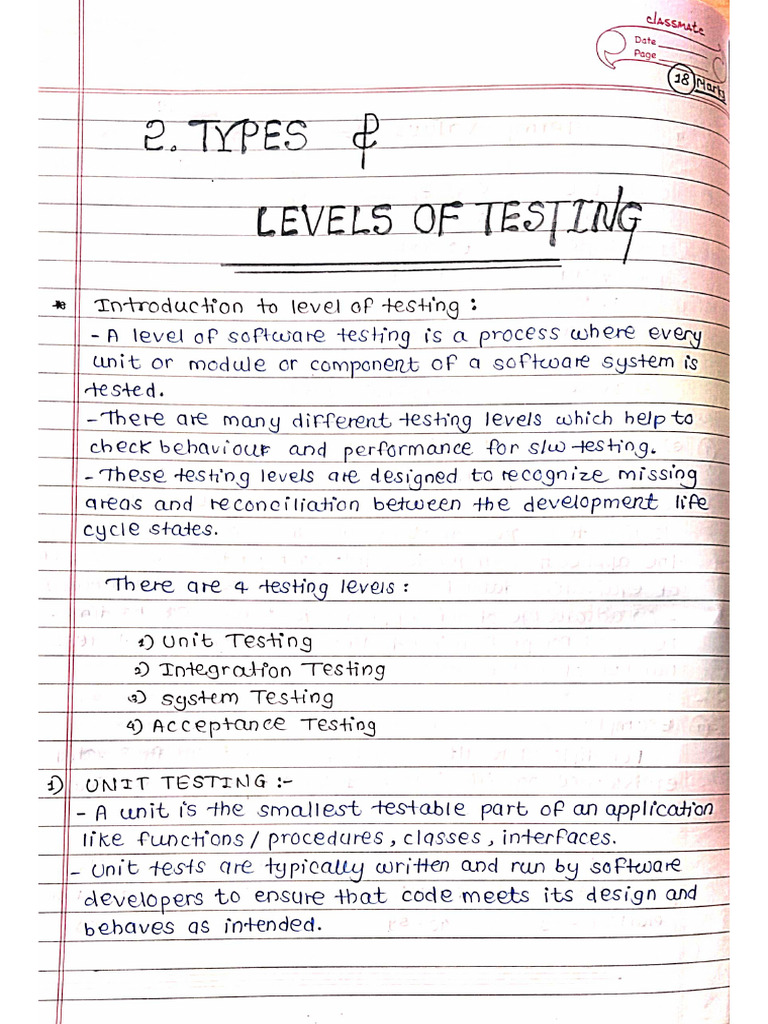 classmate
Date
Page
18 Marks
2. TYPES &
LEVELS OF TESTING
* Introduction to level of testing :
- A level of software testing is a process where every
unit or module or component of a software system is
tested.
- There are many different testing levels which help to
check behaviour and performance for s/w testing.
- These testing levels are designed to recognize missing
areas and reconciliation between the development life
cycle states.
There are 4 testing levels :
1) Unit Testing
2) Integration Testing
3) System Testing
4) Acceptance Testing
1) UNIT TESTING :-
- A unit is the smallest testable part of an application
like functions / procedures, classes, interfaces.
- Unit tests are typically written and run by software
developers to ensure that code meets its design and
behaves as intended.